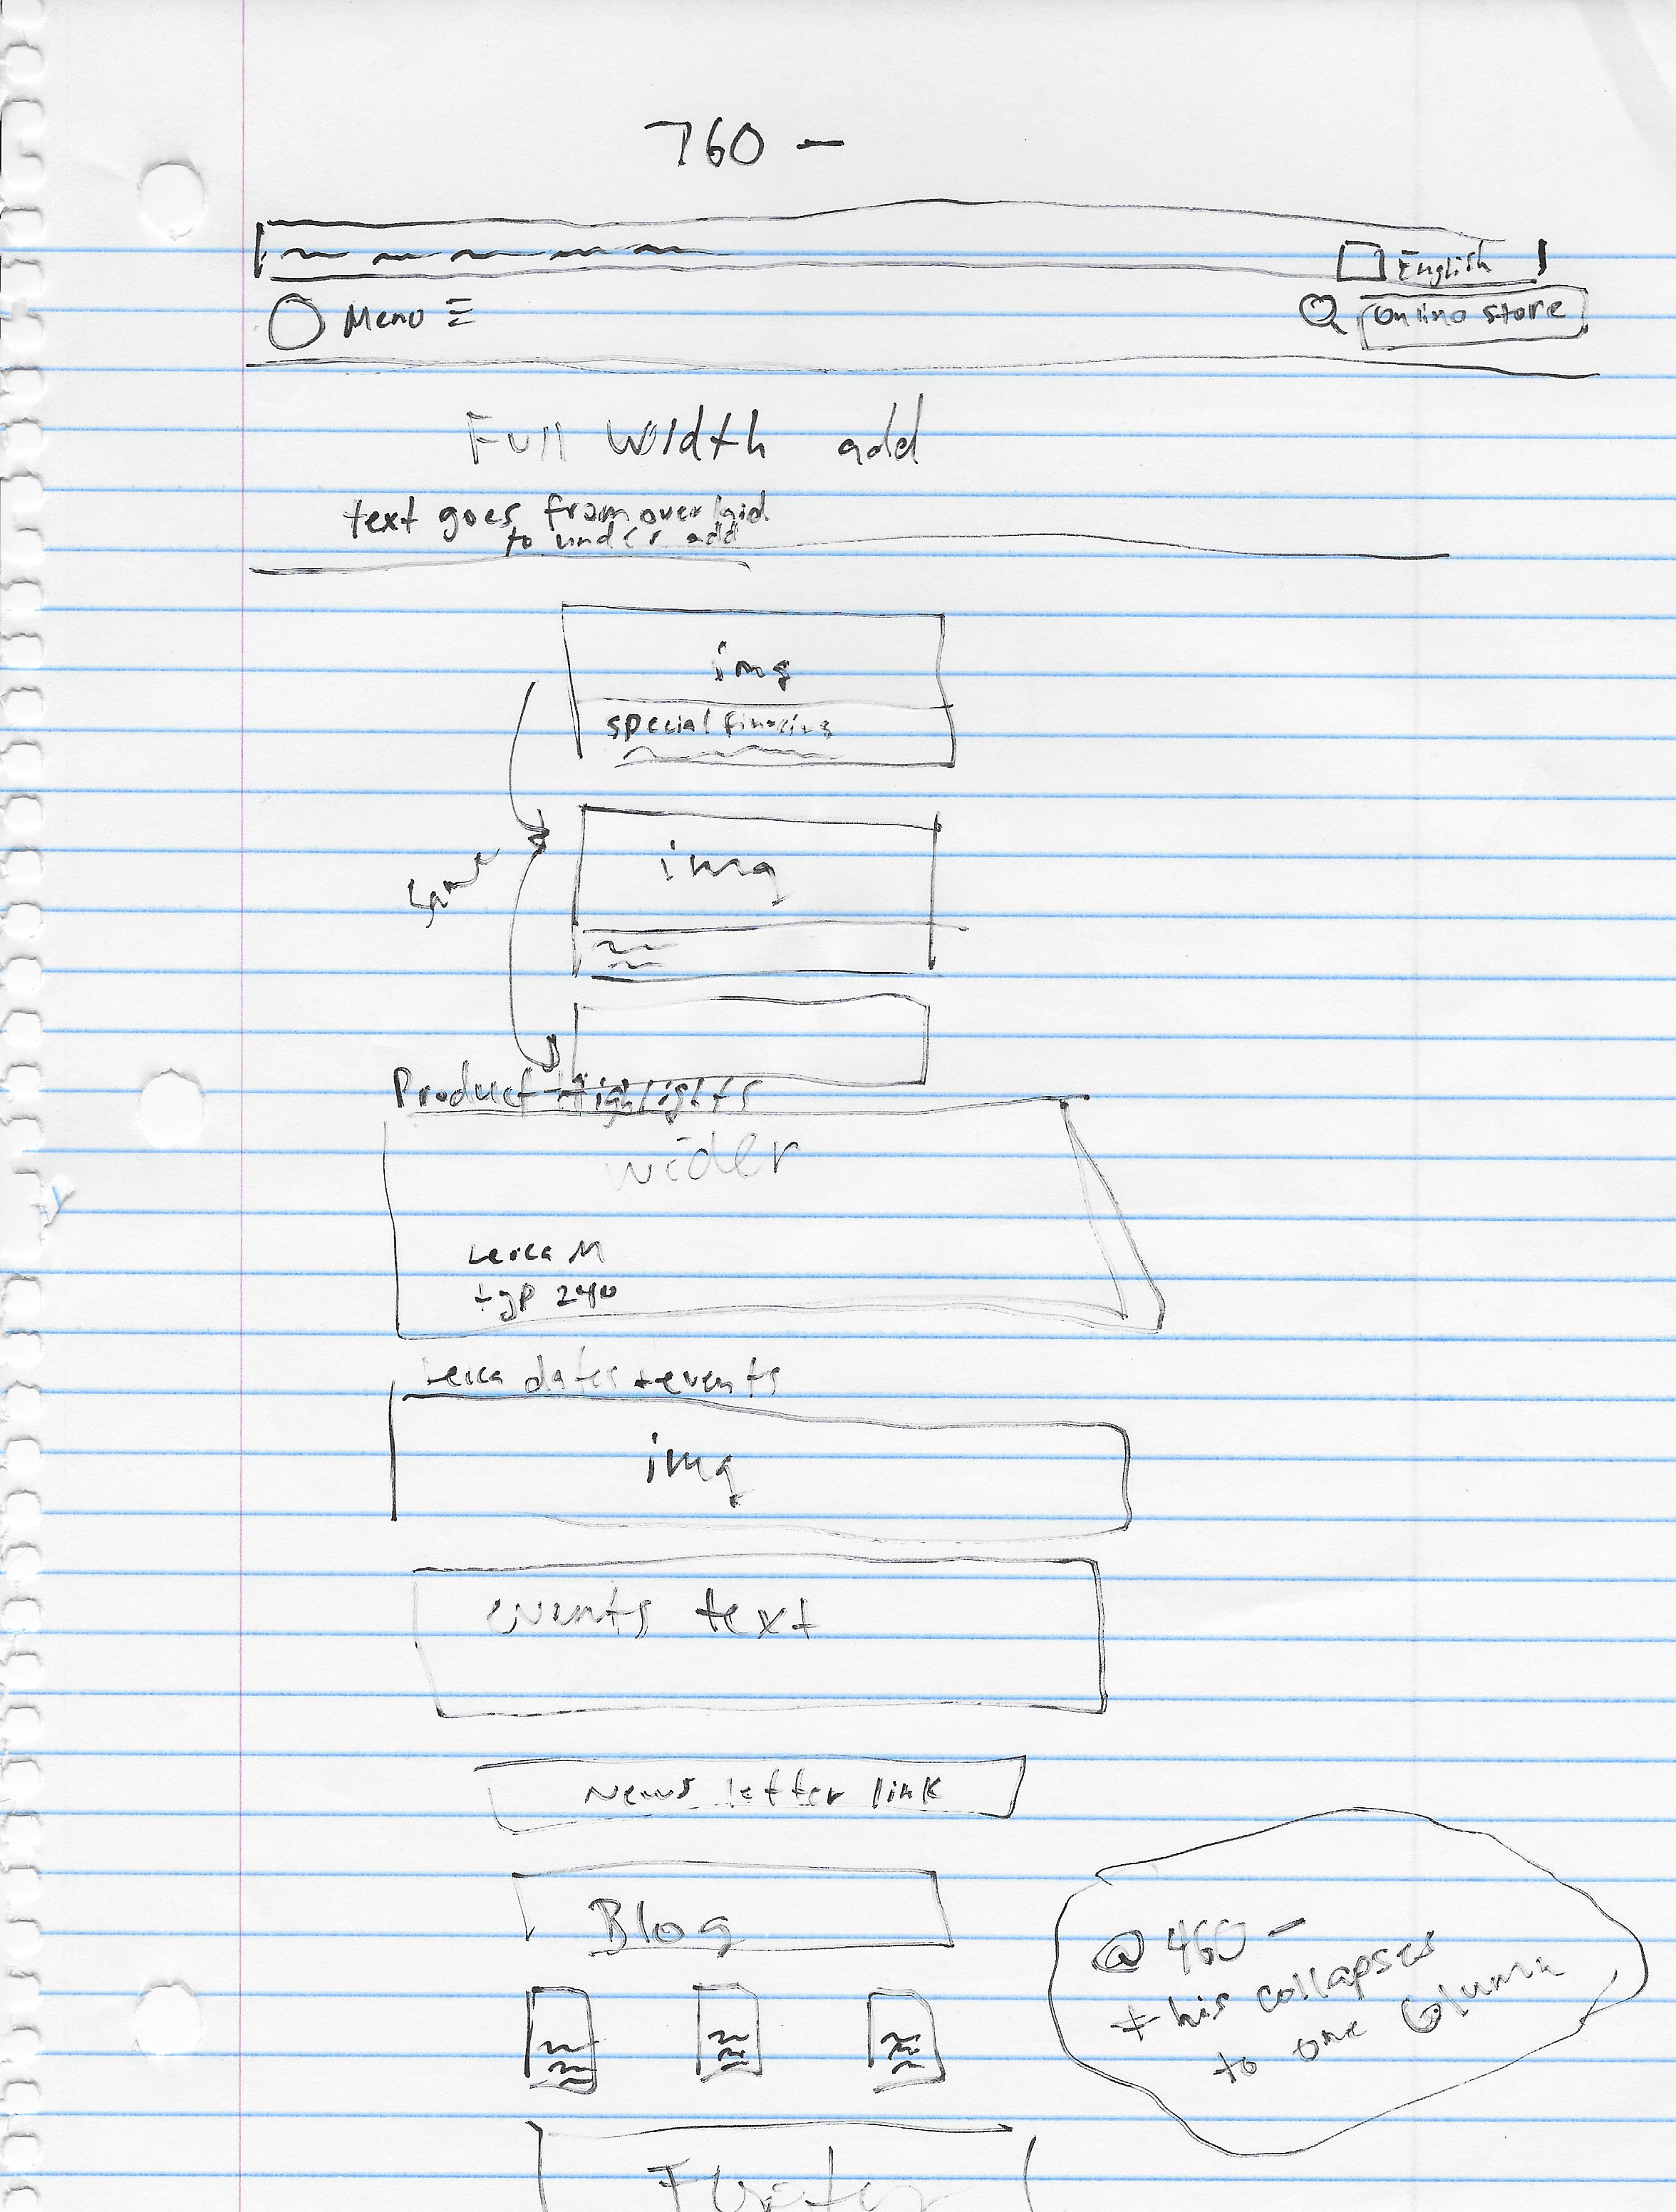 760 -
English
Menu
Online store
Full Width add
text goes from overlaid
to under add
img
special
same
img
Product Highlights
wider
Leica M
typ 240
Leica dates + events
img
events text
News letter link
Blog
@ 460 -
this collapses
to one Column
Footer